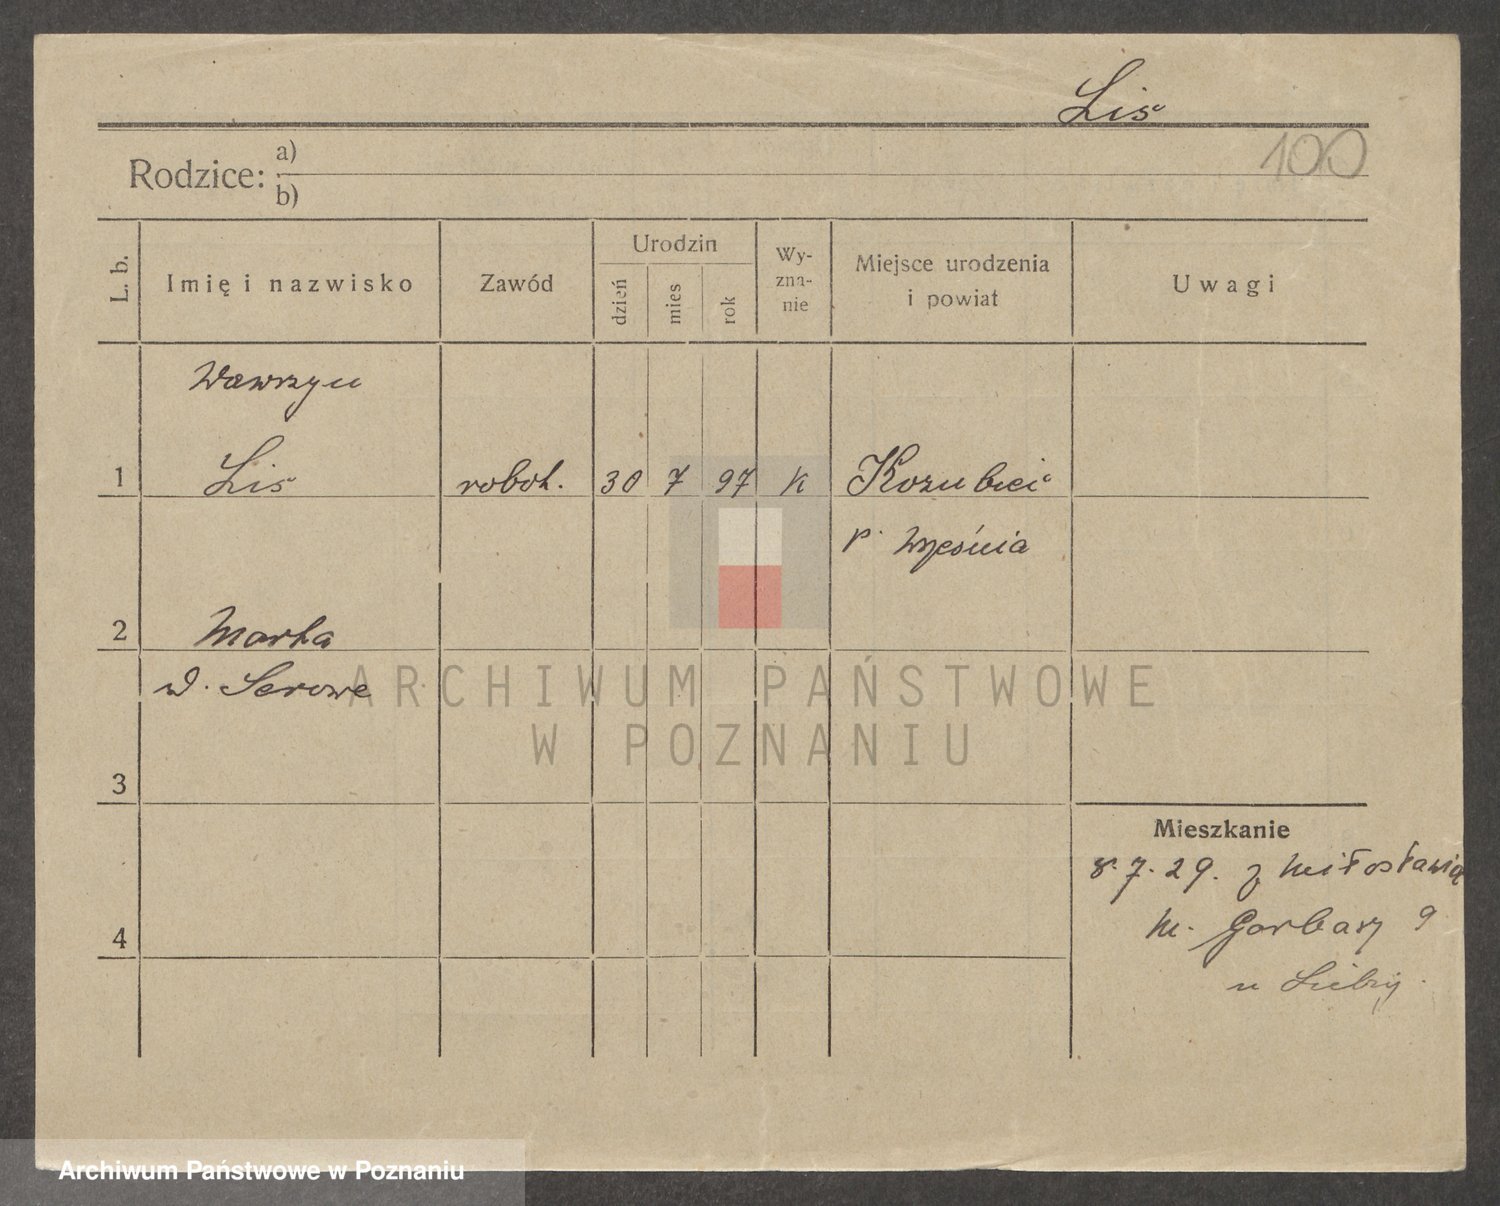 Lis
100
Rodzice: a)
b)
L. b.
Imię i nazwisko
Zawód
Urodzin
dzień
mies
rok
Wy-
zna-
nie
Miejsce urodzenia
i powiat
Uwagi
Wawrzyn
1 Lis robot. 30 7 97 k Kozubieć
p. Września
2 Marta
w. Serowe
3
Mieszkanie
8.7.29. z Miłosławia
4
m. Garbary 9
u
ARCHIWUM PAŃSTWOWE
W POZNANIU
Archiwum Państwowe w Poznaniu